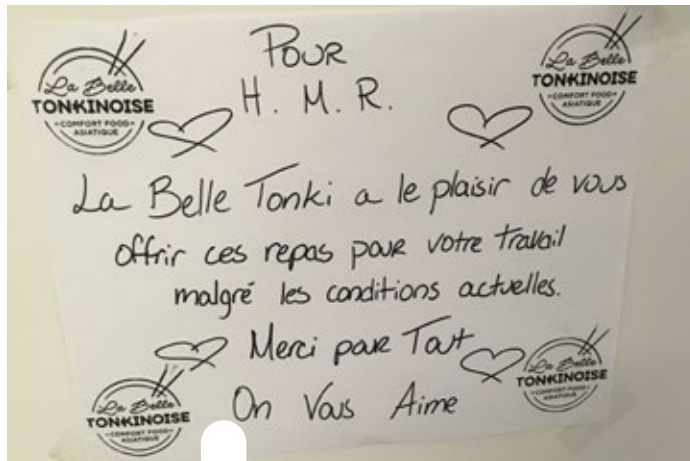 POUR
H. M. R.
La Belle
TONKINOISE
COMFORT FOOD
ASIATIQUE
La Belle
TONKINOISE
COMFORT FOOD
ASIATIQUE
La Belle Tonki a le plaisir de vous
offrir ces repas pour votre travail
malgré les conditions actuelles.
Merci pour Tout
On Vous Aime
La Belle
TONKINOISE
COMFORT FOOD
ASIATIQUE
La Belle
TONKINOISE
COMFORT FOOD
ASIATIQUE